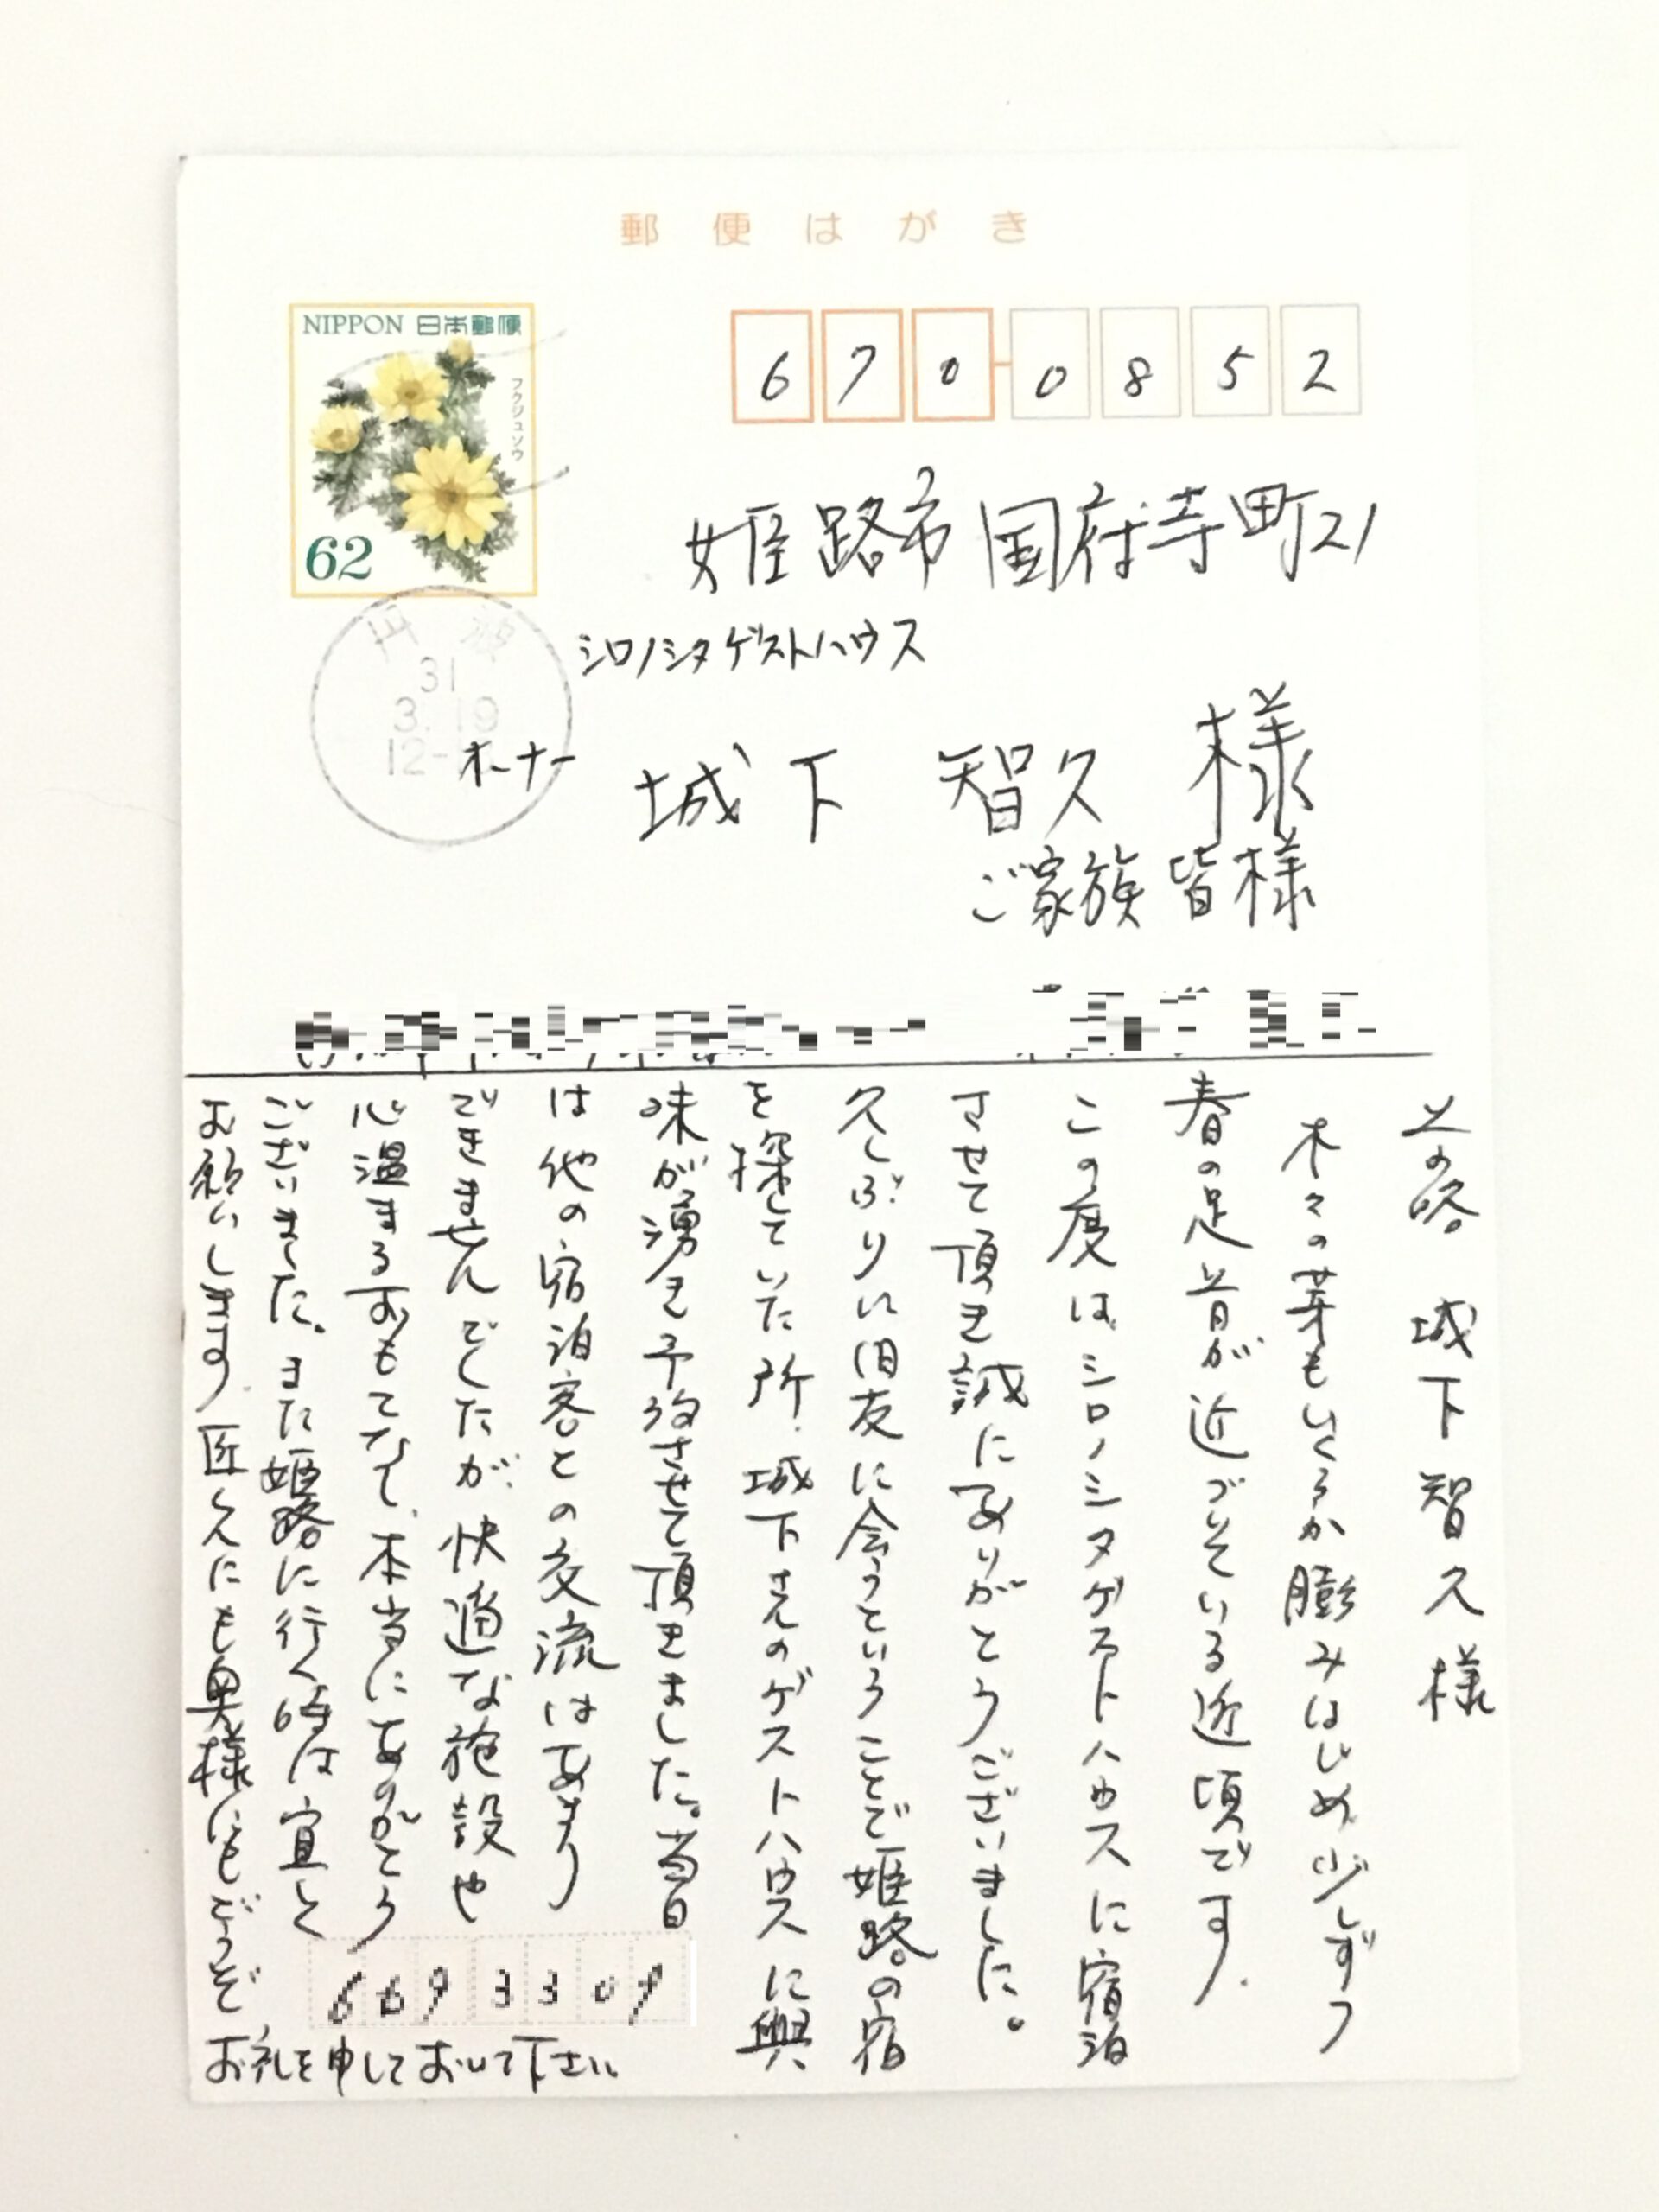 郵便はがき
NIPPON 日本郵便
フクジュソウ
62
670-0852
姫路市国府寺町21
シロノシタゲストハウス
オーナー 城下 智久 様
ご家族皆様
丹波
31
3.19
12-
前略 城下智久様
木々の芽もいくらか膨みはじめ少しずつ
春の足音が近づいている近頃です.
この度はシロノシタゲストハウスに宿泊
させて頂き誠にありがとうございました。
久しぶりに旧友に会うということで姫路の宿
を探していた所、城下さんのゲストハウスに興
味が湧き予約させて頂きました。当日
は他の宿泊客との交流はあまり
できませんでしたが、快適な施設や
心温まるおもてなし、本当にありがとう
ございました。また姫路に行く時は宜しく
お願いします. 匠くんにも奥様にもどうぞ
お礼を申しておいて下さい
669 3309